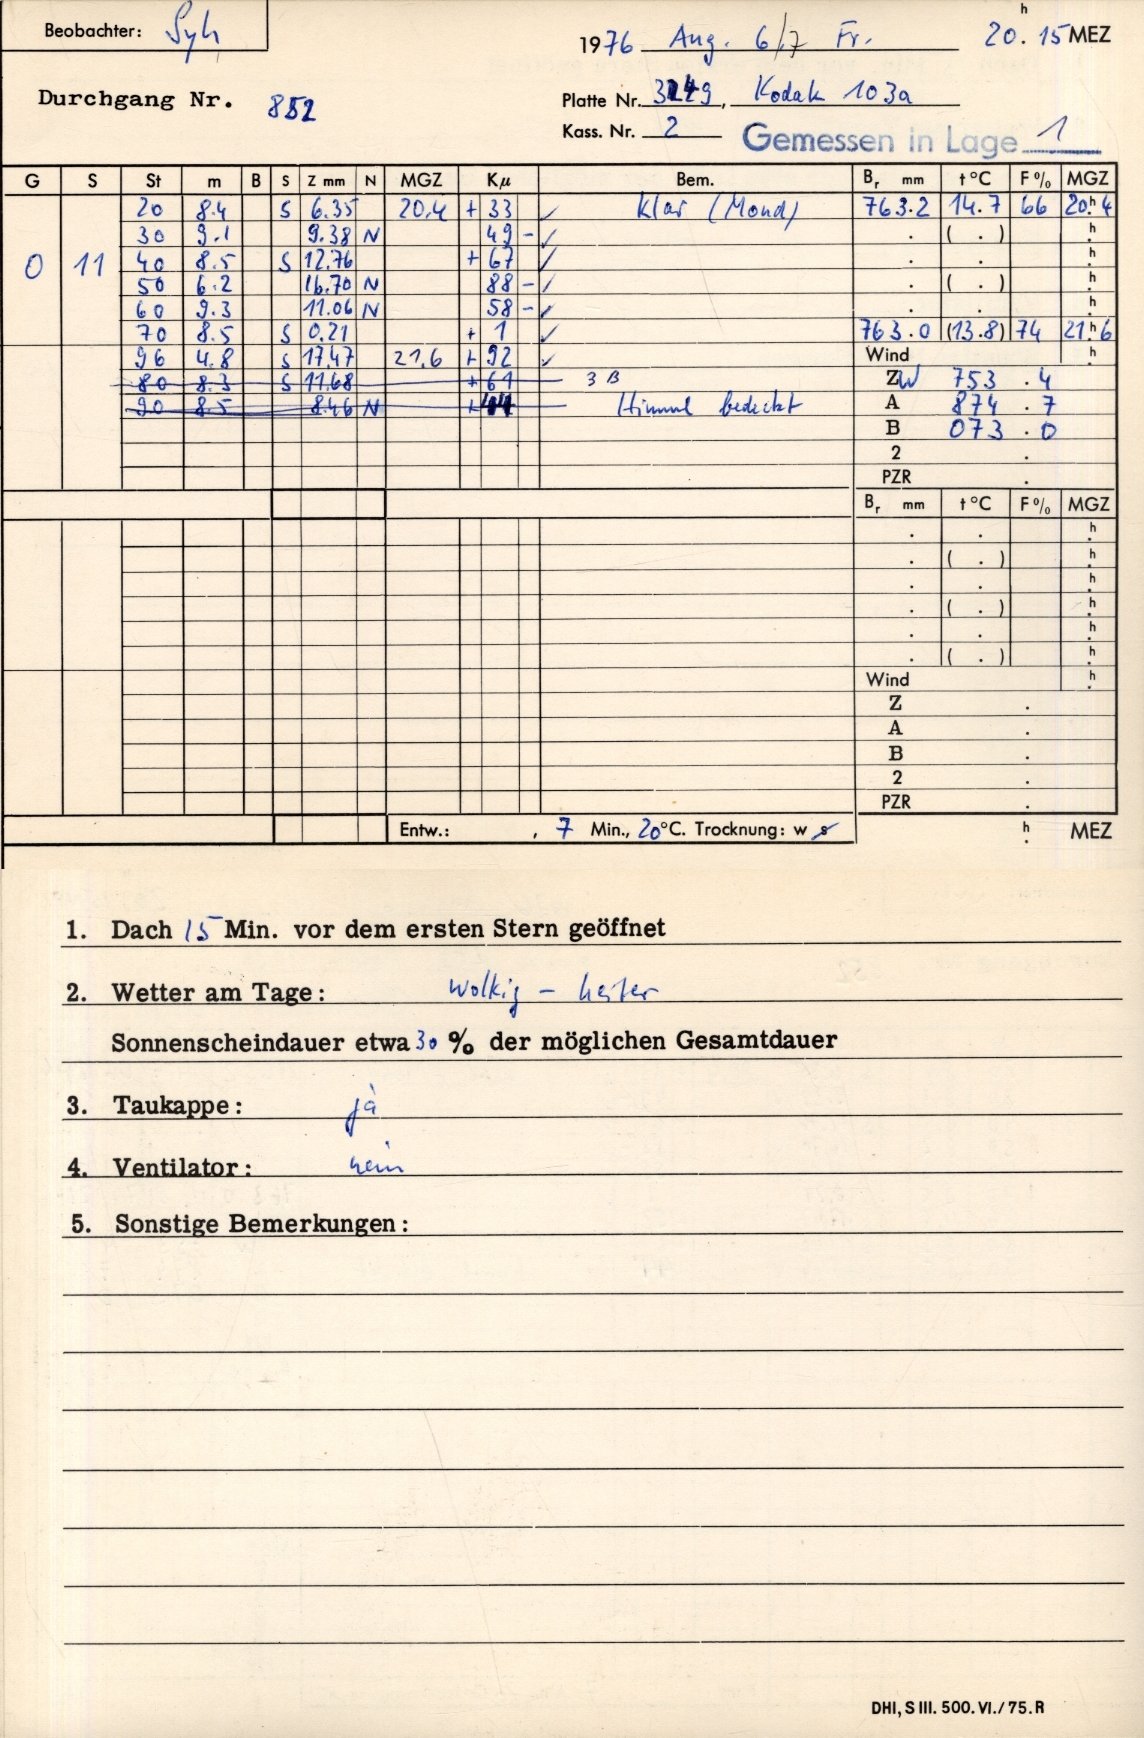 Beobachter: Syh
1976 Aug. 6/7 Fr. 20.h 15 MEZ
Durchgang Nr. 852
Platte Nr. 3249, Kodak 103a
Kass. Nr. 2 Gemessen in Lage 1
G S St m B S Z mm N MGZ Kµ Bem. Br mm t °C F % MGZ
20 8.4 S 6.35 20.4 + 33 ✓ klar (Mond) 763.2 14.7 66 20.h 4
30 9.1 9.38 N 49 - ✓ . ( . ) h
0 11 40 8.5 S 12.76 + 67 ✓ . . h
50 6.2 16.70 N 88 - ✓ . ( . ) h
60 9.3 11.06 N 58 - ✓ . . h
70 8.5 S 0.21 + 1 ✓ 763.0 (13.8) 74 21.h 6
96 4.8 S 17.47 21.6 + 92 ✓ Wind h
80 8.3 S 11.68 + 61 3 B Z W 753 . 4
90 8.5 8.46 N 44 Himmel bedeckt A 874 . 7
B 073 . 0
2 .
PZR .
Br mm t °C F % MGZ
. . h
. ( . ) h
. . h
. ( . ) h
. . h
. ( . ) h
Wind h
Z .
A .
B .
2 .
PZR .
Entw.: , 7 Min., 20°C. Trocknung: w s h MEZ
1. Dach 15 Min. vor dem ersten Stern geöffnet
2. Wetter am Tage: wolkig - heiter
Sonnenscheindauer etwa 30 % der möglichen Gesamtdauer
3. Taukappe: ja
4. Ventilator: nein
5. Sonstige Bemerkungen:
DHI, S III. 500. VI./75. R